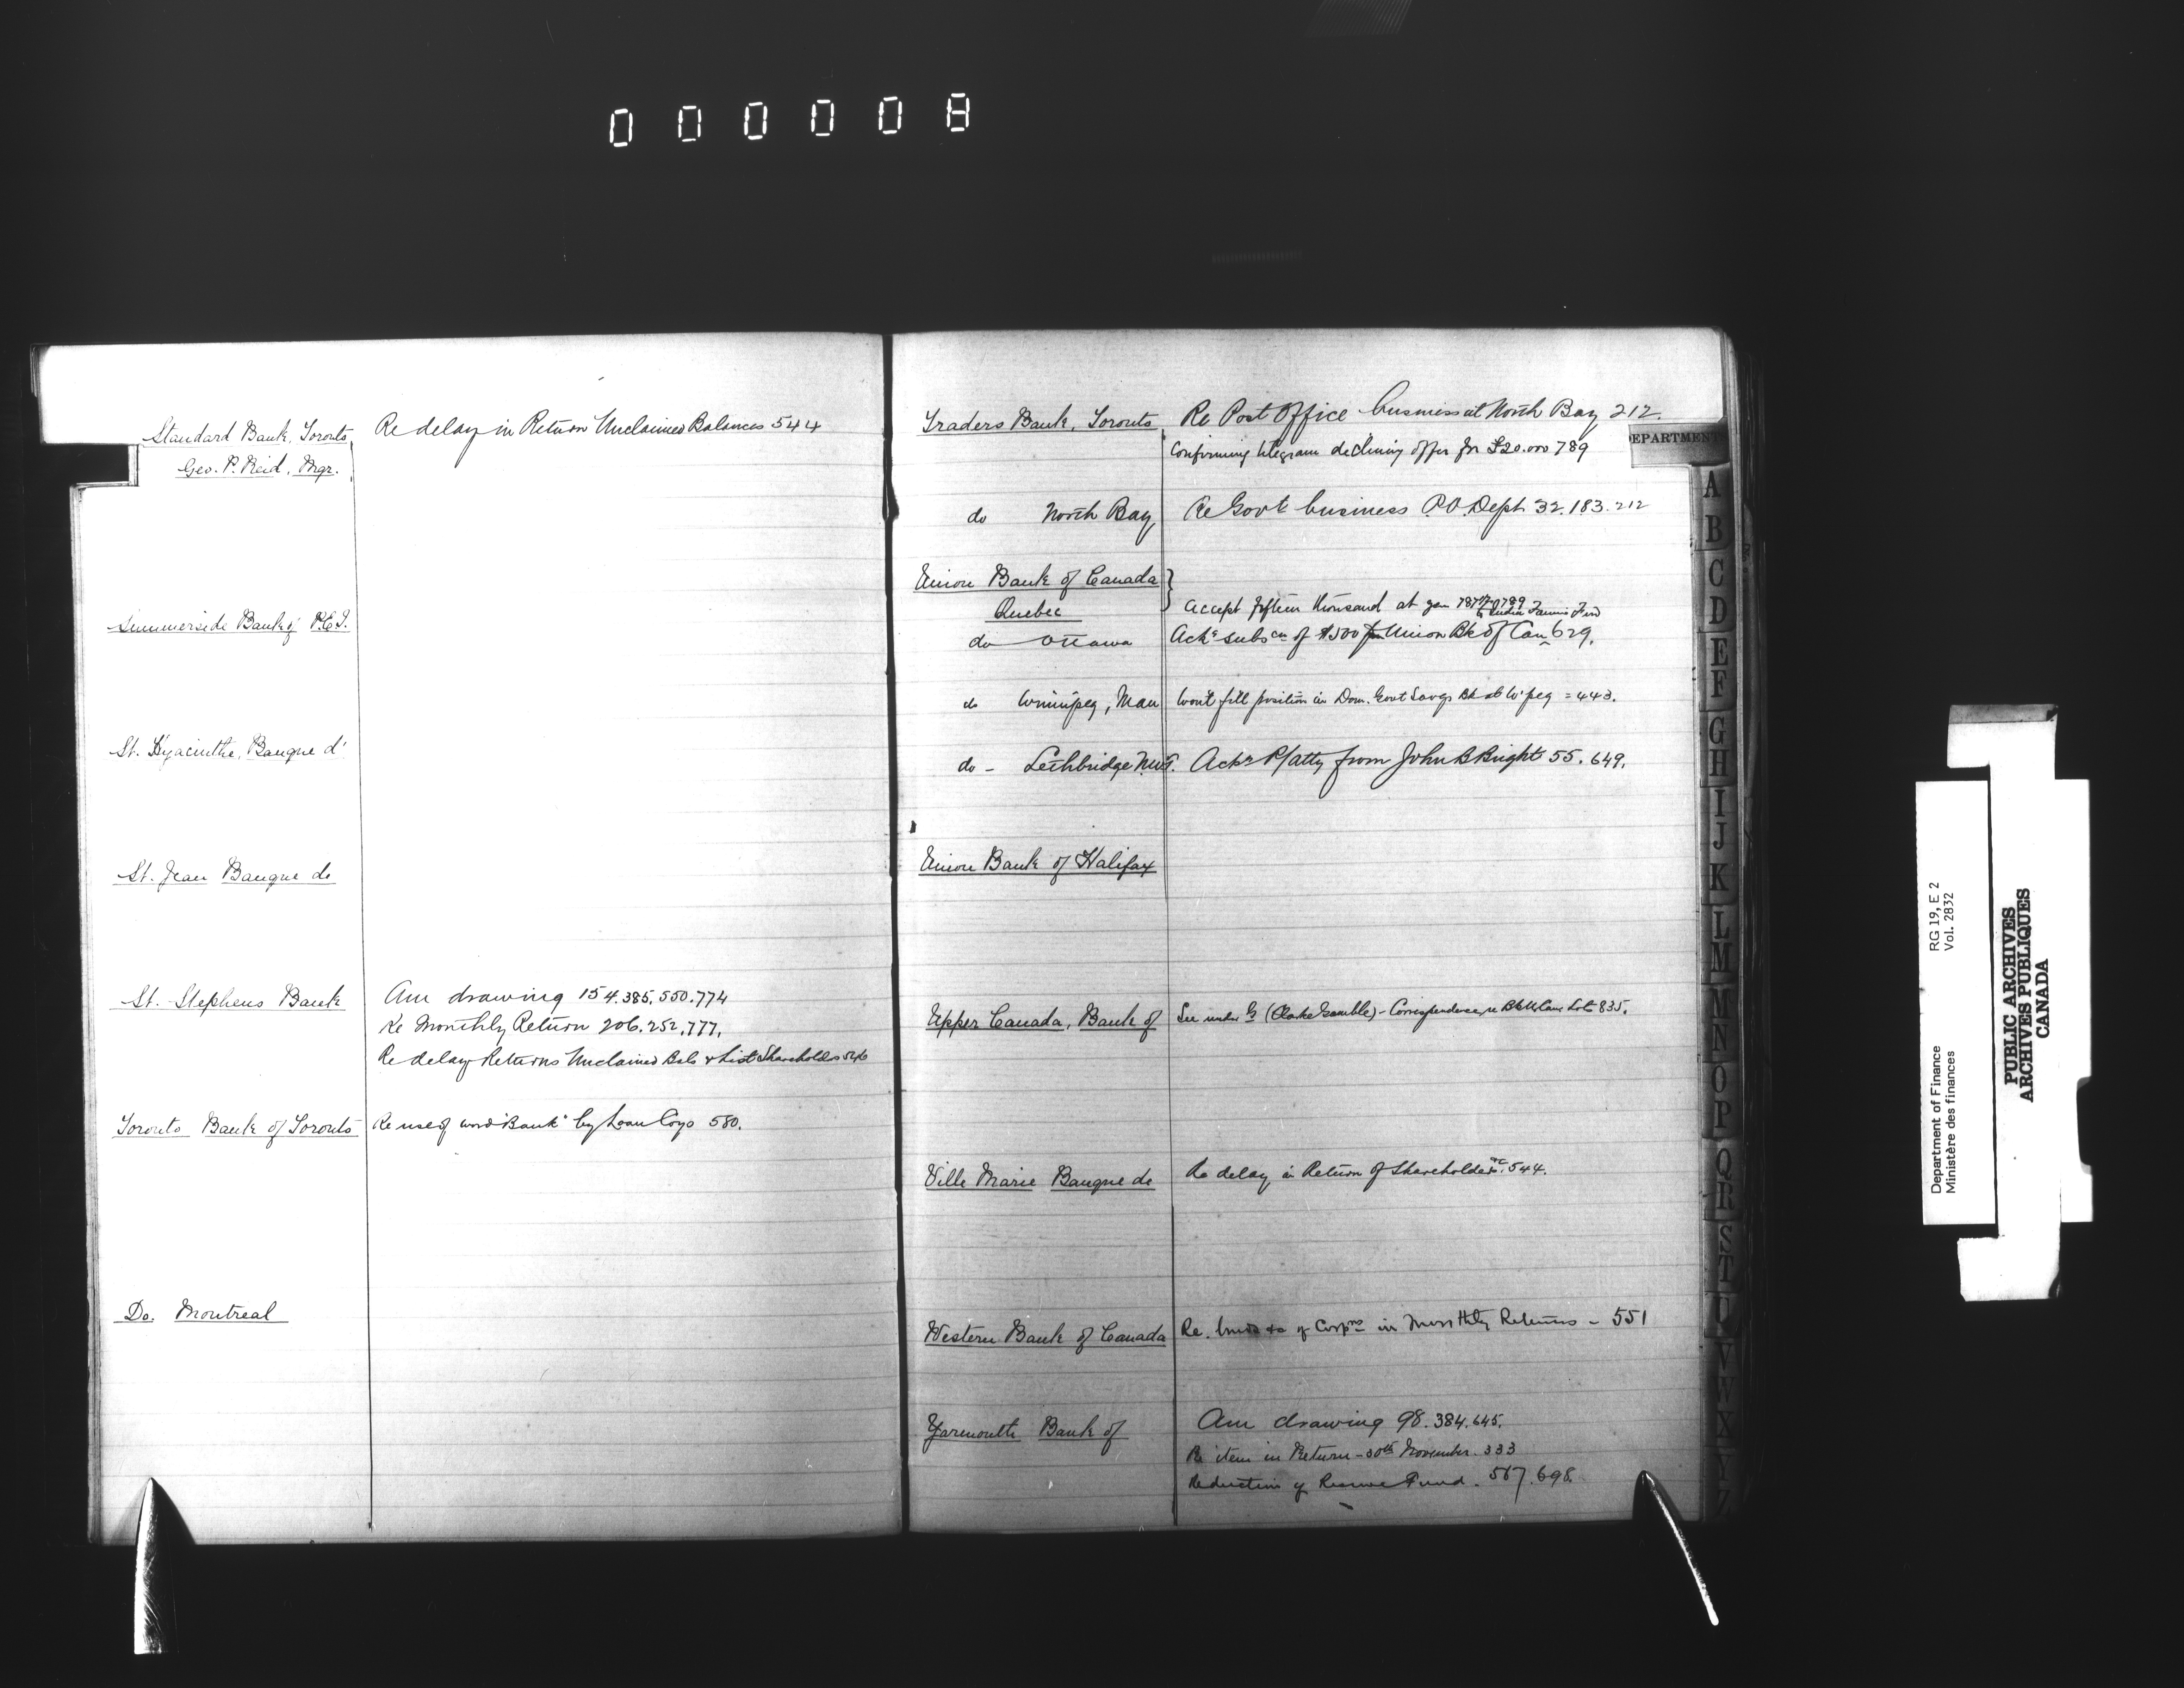 000008
Standard Bank, Toronto Re delay in Return Unclaimed Balances 544
Geo. P. Reid, Mgr.
Summerside Bank of P.E.I.
St. Hyacinthe, Banque d'
St. Jean Banque de
St. Stephens Bank Am drawing 154.385.550.774
Re Monthly Return 206.252.777.
Re delay Returns Unclaimed Bals & List Shareholders 546
Toronto Bank of Toronto Re use of word "Bank" by Loan Coys 580.
Do. Montreal
Traders Bank, Toronto Re Post Office business at North Bay 212.
Confirming telegram declining offer for £20.000 789
do North Bay, Re Govt business P.O. Dept. 32.183.212
Union Bank of Canada
Quebec Accept fifteen thousand at 789
to India Famine Fund
do Ottawa Ackg subscn of $500 from Union Bk of Can 629.
do Winnipeg, Man Wont fill position in Dom. Govt Savgs Bk at W'peg = 443.
do - Lethbridge N.W.T. Ackg P/atty from John B Bright 55.649.
Union Bank of Halifax
Upper Canada, Bank of See under G (Clarke Gamble) - Correspondence re Bk U. Can Lots 835.
Ville Marie Banque de Re delay in Return of Shareholders &c. 544.
Western Bank of Canada Re. &c of Corpns in Monthly Returns - 551
Yarmouth Bank of Am drawing 98.384.645.
Re item in Return - 30th November. 333
Reduction of Reserve Fund. 567.698.
DEPARTMENT
A
B
C
D
E
F
G
H
I
J
K
L
M
N
O
P
Q
R
S
T
U
V
W
X
Y
Z
Department of Finance RG 19, E 2
Ministère des finances Vol. 2832
PUBLIC ARCHIVES
ARCHIVES PUBLIQUES
CANADA